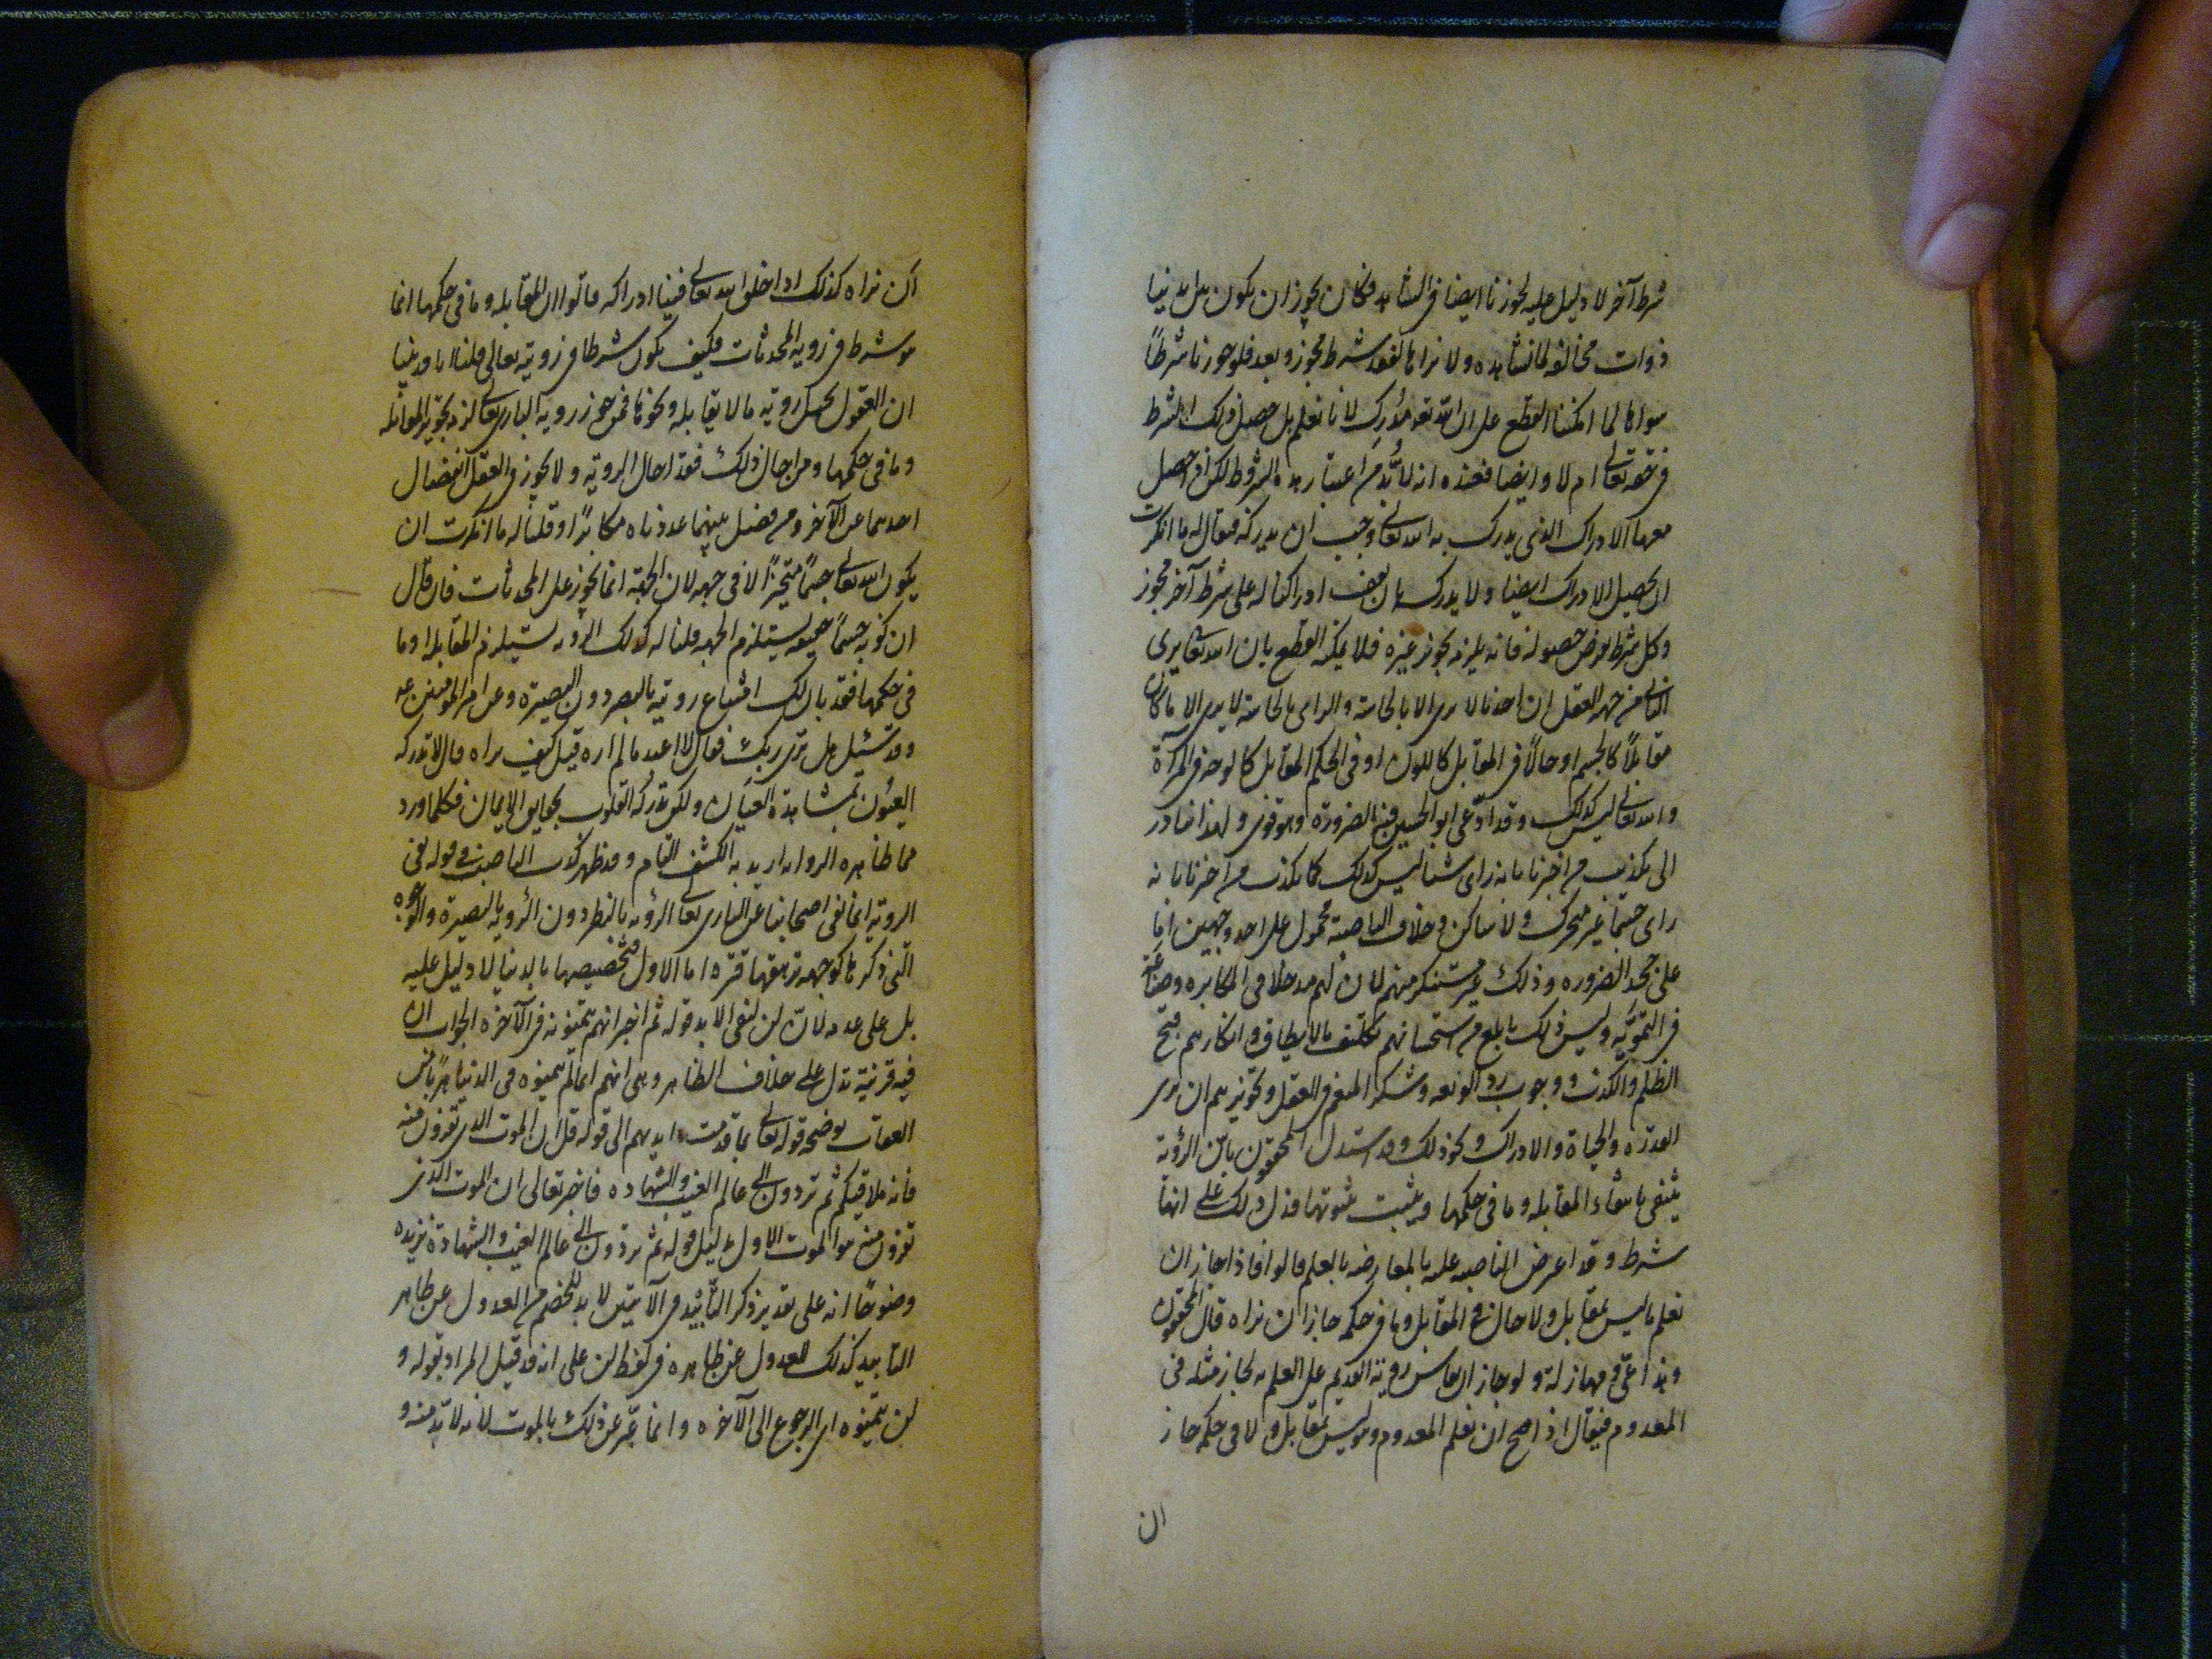 شرط آخر لا دليل عليه لجوزنا ايضا في الشاهد فكان يجوز ان يكون بين يدينا
ذوات مخالفه لما نشاهده ولا نراها لفقد شرط مجوز وبعد فلو جوزنا شرطاً
سواها لما امكننا القطع على ان الله تعالى مُدرِك لانا نعلم بل حصل ذلك الشرط
في حقه تعالى ام لا وايضا فعنده انه لا بُدّ من اعتبار هذه الشروط لكن اذا حصل
معها الادراك الذي يدرك به الله تعالى وجب ان يدركه فيقال له ما انكرت
ان يحصل الادراك ايضا ولا يدرك بان يقف ادراكنا له على شرط آخر مجوز
وكل شرط يفرض حصوله فانه يلزمه تجويز غيره فلا يمكنه القطع بان الله تعالى يرى
الثاني من جهه العقل ان احدنا لا يرى الا بالحاسه والرائي بالحاسه لا يرى الا ما كان
مقابلاً كالجسم او حالاً في المقابل كاللون او في الحكم المقابل كالوجه في المرآة
والله تعالى ليس كذلك وقد ادّعى ابو الحسين فيه الضرورة وهو قوى ولهذا نبادر
الى تكذيب من اخبرنا بانه راى شيئا ليس كذلك كما نكذب من اخبرنا بانه
راى جسماً غير متحرك ولا ساكن وخلاف الناصبة محمول على احد وجهين اما
على جحد الضروره وذلك غير مستنكر منهم لان لهم مدخلا في المكابره وصناعة
في التمويّه وليس ذلك بابلغ من استحسانهم تكليف ما لا يطاق وانكارهم قبح
الظلم والكذب ووجوب رد الوديعه وشكر المنعم في العقل وتجويزهم ان يرى
القدره والحياة والادراك ونحو ذلك وقد استدل المحققون بان الرؤية
ينتفى بانتفاء المقابله وما في حكمها ويثبت بثبوتها فدل ذلك على انها
شرط وقد اعترض الناصبه عليه بالمعارضه بالعلم قالوا فاذا جاز ان
نعلم ما ليس بمقابل ولا حال في المقابل وما في حكمه جاز ان نراه قال المحققون
وهذا عىّ ومهازلة ولو جاز ان يقاس روية القديم على العلم به لجاز مثله في
المعدوم فيقال اذا صح ان نعلم المعدوم وليس بمقابل ولا في حكمه جاز
ان
ان نراه كذلك اذا خلق الله تعالى فينا ادراكه قالوا ان المقابله وما في حكمها انما
هو شرط في رويه المحدثات فكيف يكون شرطا في رويته تعالى قلنا انا قد بينا
ان العقول تحيل روية ما لا يقابل ونحوها فمن جوز رويه البارى تعالى لزمه تجويز المقابله
وما في حكمها ومن احال ذلك فقد احال الروية ولا يجوز في العقل انفصال
احدهما عن الآخر ومن فصل بينهما عددناه مكابرًا وقلنا له ما انكرت ان
يكون الله تعالى جسماً متحيزًا لا في جهه لان الجهة انما تجوز على المحدثات فان قال
ان كونه جسماً يستلزم الجهه قلنا له كذلك الرؤيه يستلزم المقابله او ما
في حكمها فقد بان لك امتناع رويته بالبصر دون البصيرة وعن امير المومنين عه
وقد سئل هل ترى ربك فقال لا اعبد ما لم اره قيل كيف تراه قال لا تدركه
العيون بمشاهدة العيان ولكن تدركه القلوب بحقايق الايمان فكلما ورد
مما ظاهره الرؤيه اريد به الكشف التام وقد ظهر كذب الناصب في قوله نفى
الروية انما نفى اصحابنا عن البارى تعالى الرؤيه بالنظر دون الروية بالبصيرة والوجوه
التى ذكرها كوجهه ترهقها قتره اما الاول فتخصيصها بالدنيا لا دليل عليه
بل على عدمه لان لن لنفى الابد قوله ثم اخبر انهم يتمنونه في الآخره الجواب ان
فيه قرينة تدل على خلاف الظاهر وهى انهم انما لم يتمنوه في الدنيا هربا من
العقاب يوضحه قوله تعالى بما قدمت ايديهم الى قوله قل ان الموت الذي تفرون منه
فانه ملاقيكم ثم تردون الى عالم الغيب والشهاده فاخبر تعالى ان الموت الذي
تفرون منه هو الموت الاول بدليل قوله ثم تردون الى عالم الغيب والشهادة نزيده
وضوحًا انه على تقدير ذكر التأبيد في الآيتين لا بد للخصم من العدول عن ظاهر
التابيد كذلك العدول عن ظاهره في لفظ لن على انه قد قيل المراد بقوله و
لن يتمنوه اى الرجوع الى الآخره وانما عبّر عن ذلك بالموت لانه لا بُدّ منه و